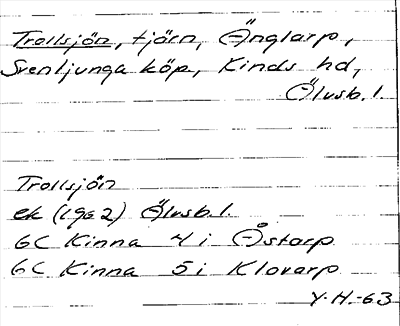 Trollsjön, tjörn, Änglarp,
Svenljunga köp, Kinds hd,
Älvsb.l.
Trollsjön
ek (1962) Älvsb.l.
6C Kinna 4 i Åstarp
6C Kinna 5 i Klovarp
Y.H.-63